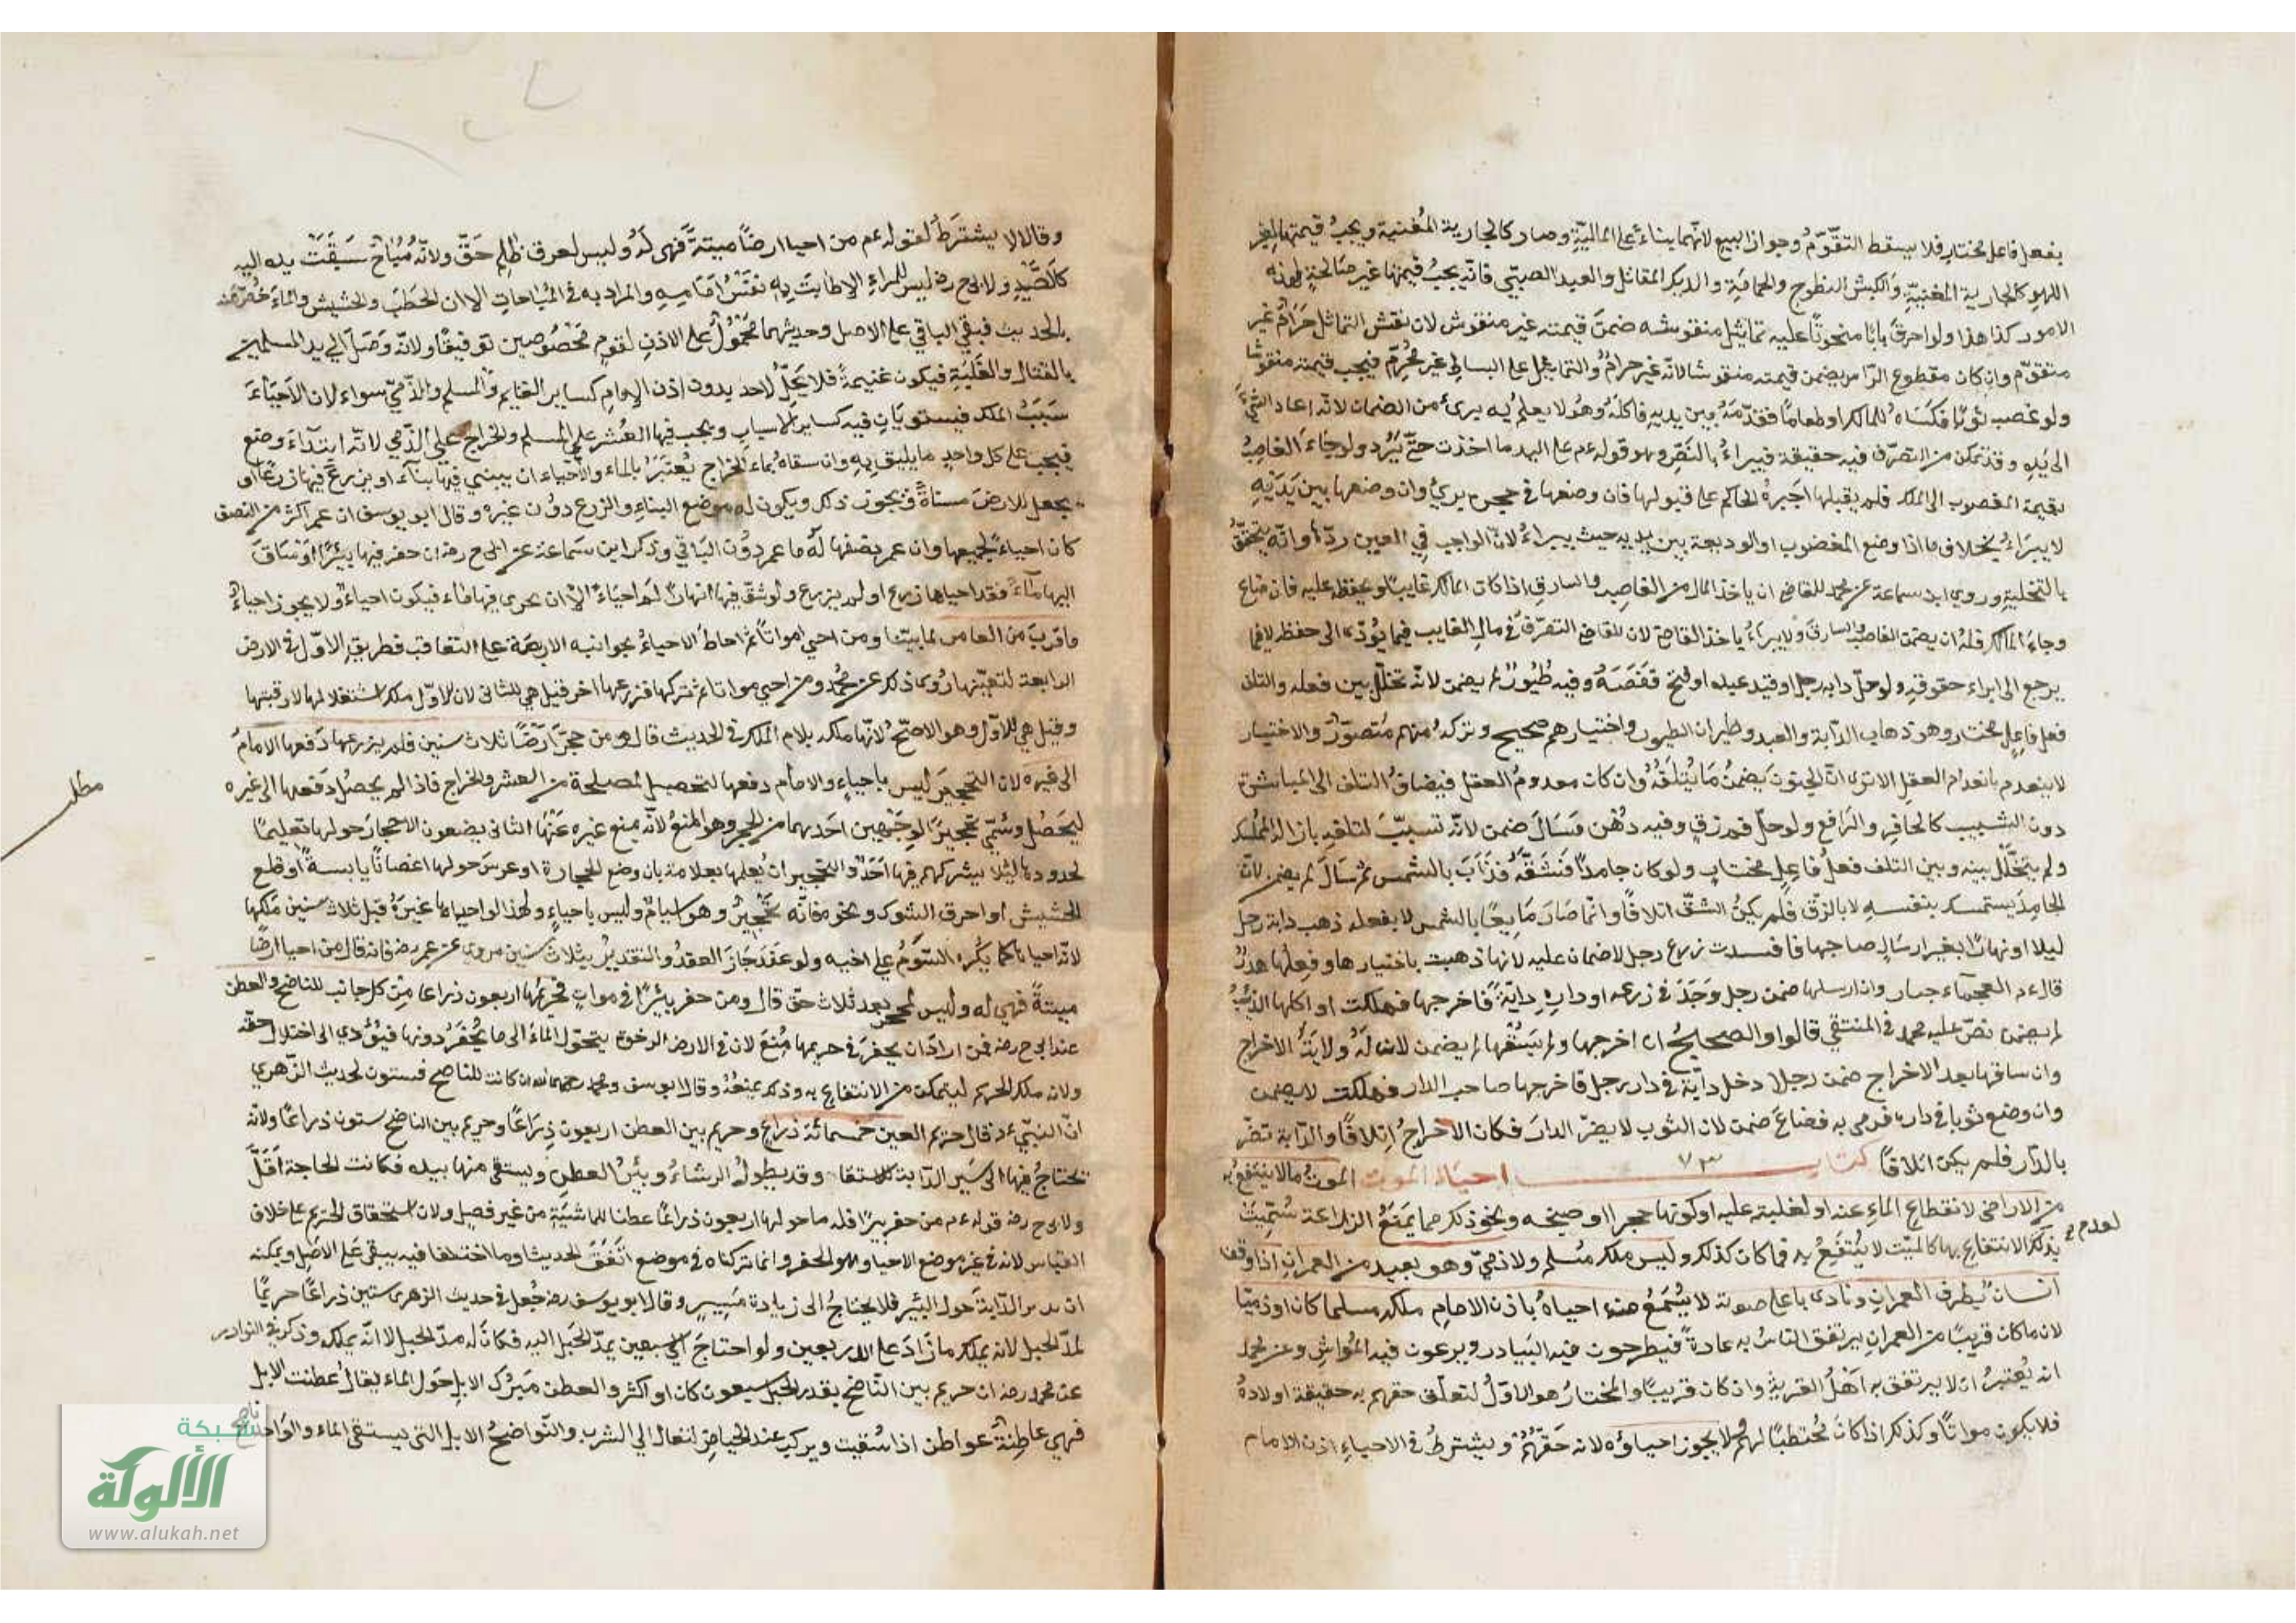 بفعل فاعل مختار فلا يسقط التقوّم وجواز البيع لانهما بناء على المالية وصار كالجارية المغنية ويجب قيمتها لغير
اللهو كالجارية المغنية والكبش النطوح والحمامة والديك المقاتل والعبد الخصي فانه يجب قيمتها غير صالحة لهذه
الامور كذا هذا ولو احرق بابا منحوتا عليه تماثيل منقوشه ضمن قيمته غير منقوش لان نقش التماثل حرام غير
متقوّم وان كان مقطوع الراس يضمن قيمته منقوشا لانه غير حرام والتماثيل على البساط غير محرّم فيجب قيمته منقوشا
ولو غصب ثوبا فكساه للمالك او طعاما فقدّمه بين يديه فاكله وهو لا يعلم به برئ من الضمان لانه اعاد الشيء
الى يده وقد تمكن من التصرّف فيه حقيقة فيبراء بالنص وهو قوله عم على اليد ما اخذت حتى ترد ولو جاء الغاصب
بقيمة المغصوب الى الملك فلم يقبلها اجبره الحاكم على قبولها فان وضعها في حجره برئ وان وضعها بين يديه
لا يبراء بخلاف ما اذا وضع المغصوب او الوديعة بين يديه حيث يبراء لان الواجب في العين ردّها وانه يتحقق
بالتخلية وروى ابن سماعة عن محمد للقاضي ان ياخذ المال من الغاصب والسارق اذا كان المالك غايبا ويحفظ عليه فان ضاع
وجاء المالك فله ان يضمن الغاصب والسارق ولا يبراء ياخذ القاضي لان للقاضي التصرّف في مال الغايب فيما يؤدّى الى حفظه لا فيما
يرجع الى ابراء حقوقه ولو حلّ دابه رجل او قيد عبده او فتح قفصه وفيه طيور لم يضمن لانه تخلّل بين فعله والتلف
فعل فاعل مختار وهو ذهاب الدابة والعبد وطيران الطيور واختيارهم صحيح وتركه منهم متصوّر والاختيار
لا ينعدم بانعدام العقل الا ترى ان المجنون يضمن ما يتلفه وان كان معدوم العقل فيضاف التلف الى المباشرة
دون التسبيب كالحافر والدافع ولو حلّ فم زق وفيه دهن فسال ضمن لانه تسبيب لتلفه بازالة الممسك
ولم يتخلّل بينه وبين التلف فعل فاعل مختار ولو كان جامدا فشقّه فذاب بالشمس ثم سال لم يضمن لان
الجامد يستمسك بنفسه لا بالزقّ فلم يكن الشقّ اتلافا وانما صار مايعا بالشمس لا بفعله ذهب دابة رجل
ليلا او نهارا بغير ارسال صاحبها فافسدت زرع رجل لا ضمان عليه لانها ذهبت باختيارها وفعلها هدر
قال عم العجماء جبار وان ارسلها ضمن رجل وجد في زرعه او داره دابة فاخرجها فهلكت او اكلها الذئب
لم يضمن نصّ عليه محمد في المنتقي قالوا والصحيح ان اخرجها ولم يسقها لم يضمن لان له ولاية الاخراج
وان ساقها بعد الاخراج ضمن رجل دخل دابة في دار رجل فاخرجها صاحب الدار فهلكت لا يضمن
وان وضع ثوبا في داره فرمى به فضاع ضمن لان الثوب لا يضرّ الدار فكان الاخراج اتلافا والدابة تضرّ
بالدار فلم يكن اتلافا كتاب احياء الموت الموت ما لا ينتفع به
من الاراضي لانقطاع الماء عنه او لغلبته عليه او كونها حجرا او سبخه ونحو ذلك مما يمنع الزراعة سمّيت
بذلك لعدم الانتفاع بها كالميّت لا ينتفع به فما كان كذلك وليس ملك مسلم ولا ذميّ وهو بعيد من العمران اذا وقف
انسان بطرف العمران ونادى باعلى صوته لا يسمع منه احياه باذن الامام ملكه مسلما كان او ذميا
لان ما كان قريبا من العمران يرتفق الناس به عادة فيطرحون فيه البيادر ويرعون فيه المواشي وعن محمد
انه يعتبر ان لا يرتفق به اهل القرية وان كان قريبا والمختار هو الاوّل لتعلق حقهم به حقيقة او لادة
فلا يكون مواتا وكذلك اذا كان محتطبا لهم لا يجوز احياؤه لانه حقّهم ويشترط في الاحياء اذن الامام
وقالا لا يشترط لقوله عم من احيا ارضا ميتة فهي له وليس لعرق ظالم حقّ ولانه مباح سبقت يده اليه
كالصيد ولابى ح رض ليس للمرء الا ما طابت به نفس امامه والمراد به في المباحات الا ان الحطب والحشيش والماء خصّ منه
بالحديث فبقي الباقي على الاصل وحديثهما محمول على الاذن لقوم مخصوصين توفيقا ولانه وصل الى يد المسلمين
بالقتال والغلبة فيكون غنيمة فلا يحلّ لاحد بدون اذن الامام كساير الغنايم والمسلم والذميّ سواء لان الاحياء
سبب الملك فيستويان فيه كساير الاسباب ويجب فيها العشر على المسلم والخراج على الذمي لانه ابتداء وضع
فيجب على كل واحد ما يليق به وان سقاه بماء الخراج يعتبر بالماء والاحياء ان يبني فيها بناء او يزرع فيها زرعا او
يجعل للارض مسناة ونحو ذلك ويكون له موضع البناء والزرع دون غيره وقال ابو يوسف ان عمر اكثر من النصف
كان احياء لجميعها وان عمر نصفها له ما عمر دون الباقي وذكر ابن سماعة عن ابي ح رض ان حفر فيها بئرا او ساق
اليها ماء فقد احياها زرع او لم يزرع ولو شقّ فيها انهارا لم احياء الا ان يجري فيها ماء فيكون احياء ولا يجوز احياء
ما قرب من العامر لما بيّنا ومن احيى مواتا ثم احاط الاحياء بجوانبه الاربعة على التعاقب فطريق الاوّل في الارض
الرابعة لتعيّنها روى ذلك عن محمد ومن احيى مواتا ثم تركها فزرعها اخر قيل هي للثاني لان الاوّل ملك استغلالها لا رقبتها
وقيل هي للاوّل وهو الاصحّ لانها ملكه بلام الملك في الحديث قال ومن حجر ارضا ثلاث سنين فلم يزرعها دفعها الامام
الى غيره لان التحجير ليس باحياء والامام دفعها لتحصيل المصلحة من العشر والخراج فاذا لم يحصل دفعها الى غيره
ليحصل وسمّي تحجيرا لوجهين احدهما من الحجر وهو المنع لانه منع غيره عنها الثاني يضعون الاحجار حولها تعليما
لحدودها لئلا يشركهم فيها احد والتحجير ان يعلمها بعلامة بان وضع الحجارة او غرس حولها اغصانا يابسة او قلع
الحشيش او احرق الشوك ونحوه فانه تحجير وهو استيام وليس باحياء ولهذا لو احياها غيره قبل ثلاث سنين ملكها
لانه احياها كما يكره السوم على اخيه ولو عقد جاز العقد والتقدير بثلاث سنين مروي عن عمر رض فانه قال من احيا ارضا
ميتة فهي له وليس لمحجر بعد ثلاث حقّ قال ومن حفر بئرا في موات فحريمها اربعون ذراعا من كل جانب للناضح والعطن
عند ابي ح رض فمن اراد ان يحفر في حريمها منع لان في الارض الرخوة يتحوّل الماء الى ما يحفر دونها فيؤدي الى اختلال حقه
ولانه ملك الحريم ليتمكن من الانتفاع به وذلك يمنعه وقال ابو يوسف ومحمد رحمهما الله ان كانت للناضح فستون لحديث الزهري
ان النبي عم قال حريم العين خمسمائة ذراع وحريم بئر العطن اربعون ذراعا وحريم بئر الناضح ستون ذراعا ولانه
تحتاج فيها الى سير الدابة للاستقاء وقد يطول الرشاء وبئر العطن ويستقى منها بيده فكانت الحاجة اقلّ
ولابى ح رض قوله عم من حفر بيرا فله ما حولها اربعون ذراعا عطنا للماشية من غير فصل ولان استحقاق الحريم على خلاف
القياس لانه في غير موضع الاحياء وهو الحفر وانما تركناه في موضع اتفق الحديث وما اختلفا فيه يبقى على الاصل ويمكنه
ان يدير الدابة حول البئر فلا يحتاج الى زيادة مسير وقال ابو يوسف رض جعل في حديث الزهرى ستين ذراعا حريما
لمدّ الحبل لانه يملك ما زاد على الاربعين ولو احتاج الى سبعين يمدّ الحبل اليه فكان له مدّ الحبل لا انه يملكه وذكر في النوادر
عن محمد رض ان حريم بئر الناضح بقدر الحبل سبعون كان او اكثر والعطن مبرك الابل حول الماء يقال عطنت الابل
فهي عاطنة عواطن اذا سقيت وبركت عند الحياض لتعاد الى الشرب والنواضح الابل التي يستقى الماء والواحد ناضح
مطلب
شبكة
الألوكة
www.alukah.net